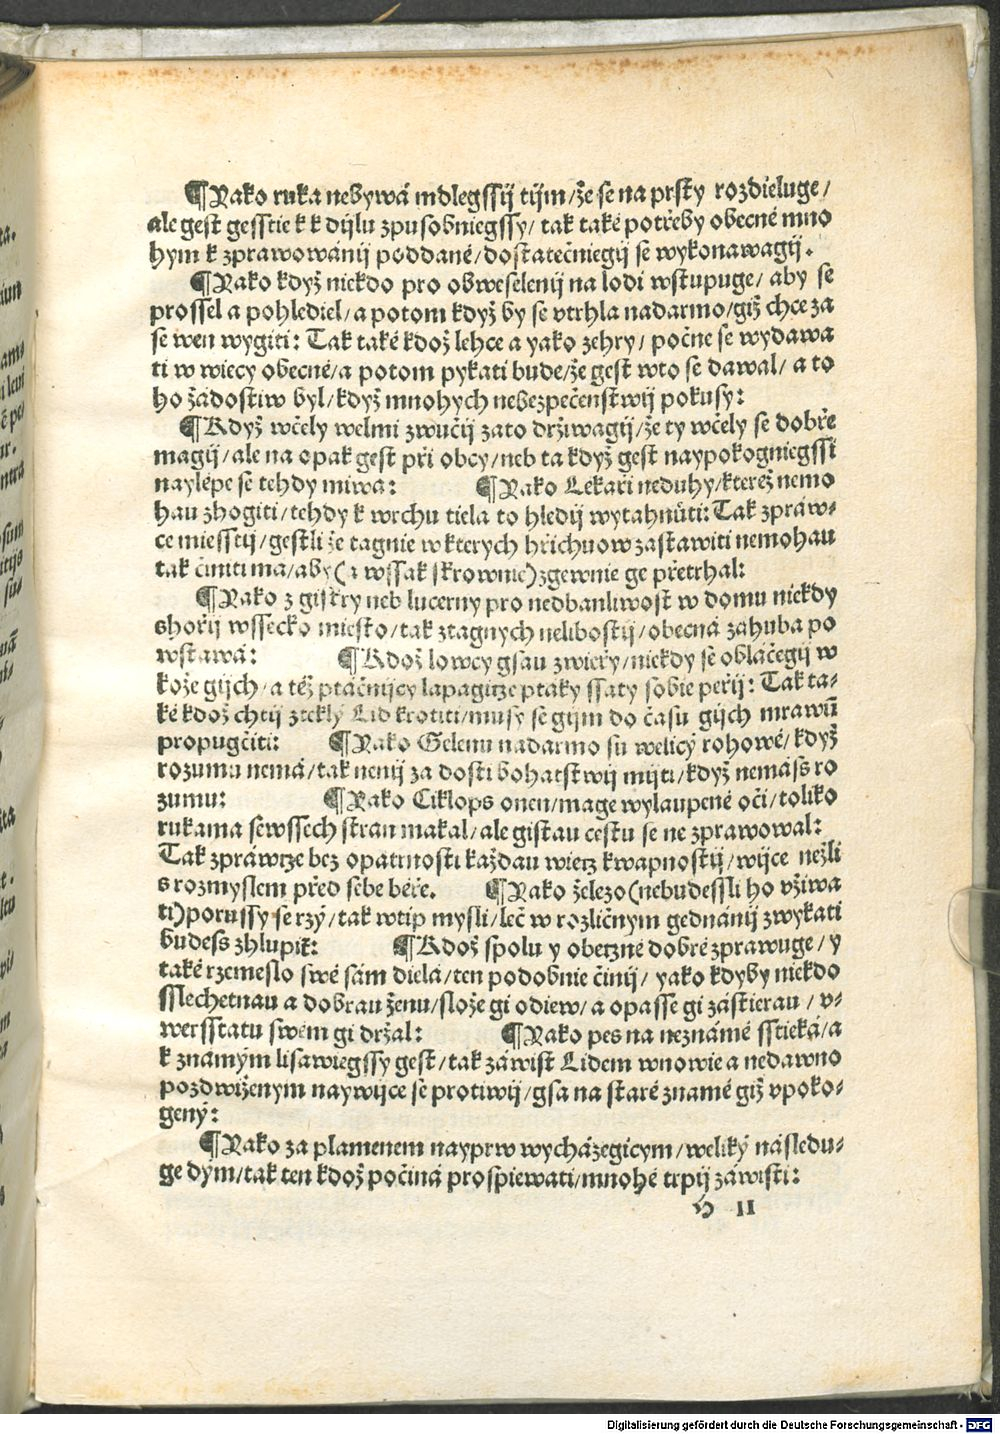 ¶Yako ruka nebywá mdlegssij tijm/že se na prsty rozdieluge/
ale gest gesstie k k dijlu zpusobniegssy/ tak také potřeby obecné mno
hym k zprawowánij poddané/dostatečniegij se wykonawagij.
¶Yako když niekdo pro obweselenij na lodi wstupuge/ aby se
prossel a pohlediel/a potom když by se vtrhla nadarmo/giž chce za
se wen wygiti: Tak také kdož lehce a yako zehry/ počne se wydawa
ti w wiecy obecné/a potom pykati bude/že gest wto se dawal/ a to
ho žádostiw byl/když mnohych nebezpečenstwij pokusy:
¶Když wčely welmi zwučij zato držiwagij/že ty wčely se dobře
magij/ale na opak gest při obcy/neb ta když gest naypokogniegssi
naylépe se tehdy míwá: ¶Yako Lekaři neduhy/kterež nemo
hau zhogiti/tehdy k wrchu tiela to hledij wytahnúti: Tak zpráw-
ce miesstij/gestli že tagnie w kterych hřichuow zastawiti nemohau
tak činiti má/aby(a wssak skrownie)zgewnie ge přetrhal:
¶Yako z gistry neb lucerny pro nedbanliwost w domu niekdy
shořij wssecko miesto/tak z tagnych nelibostij/obecná zahuba po
wstawá: ¶Kdož lowcy gsau zwieřy/niekdy se obláčegij w
kože gijch/a též ptáčnijcy lapagitze ptaky ssaty sobie peřij: Tak ta-
ké kdož chtij zteklý Lid krotiti/musy se gijm do času gijch mrawů
propugčiti: ¶Yako Gelenu nadarmo su welicý rohowé/když
rozumu nemá/tak nenij za dosti bohatstwij mijti/když nemáss ro
zumu: ¶Yako Ciklops onen/mage wylaupené oči/toliko
rukama sewssech stran makal/ale gistau cestu se ne zprawowal:
Tak zpráwtze bez opatrnosti každau wietz kwapnostij/wijce nežli
s rozmyslem před sebe béře. ¶Yako železo(nebudessli ho vžiwa
ti)porussy se rzý/tak wtip mysli/leč w rozličnym gednánij zwykati
budess zhlupit: ¶Kdož spolu y obetzné dobré zprawuge/ y
také rzemeslo swé sám dielá/ten podobnie činij/ yako kdyby niekdo
sslechetnau a dobrau ženu/slože gi odiew/a opasse gi zástierau/ v-
wersstatu swém gi držal: ¶Yako pes na neznámé sstieká/a
k známým lisawiegssy gest/tak záwist Lidem wnowie a nedawno
pozdwiženym naywijce se protiwij/gsa na staré znamé giž vpoko-
gený:
¶Yako za plamenem nayprw wycházegicym/weliký následu-
ge dým/tak ten kdož počiná prospiewati/mnohé trpij záwisti:
II
Digitalisierung gefördert durch die Deutsche Forschungsgemeinschaft - DFG